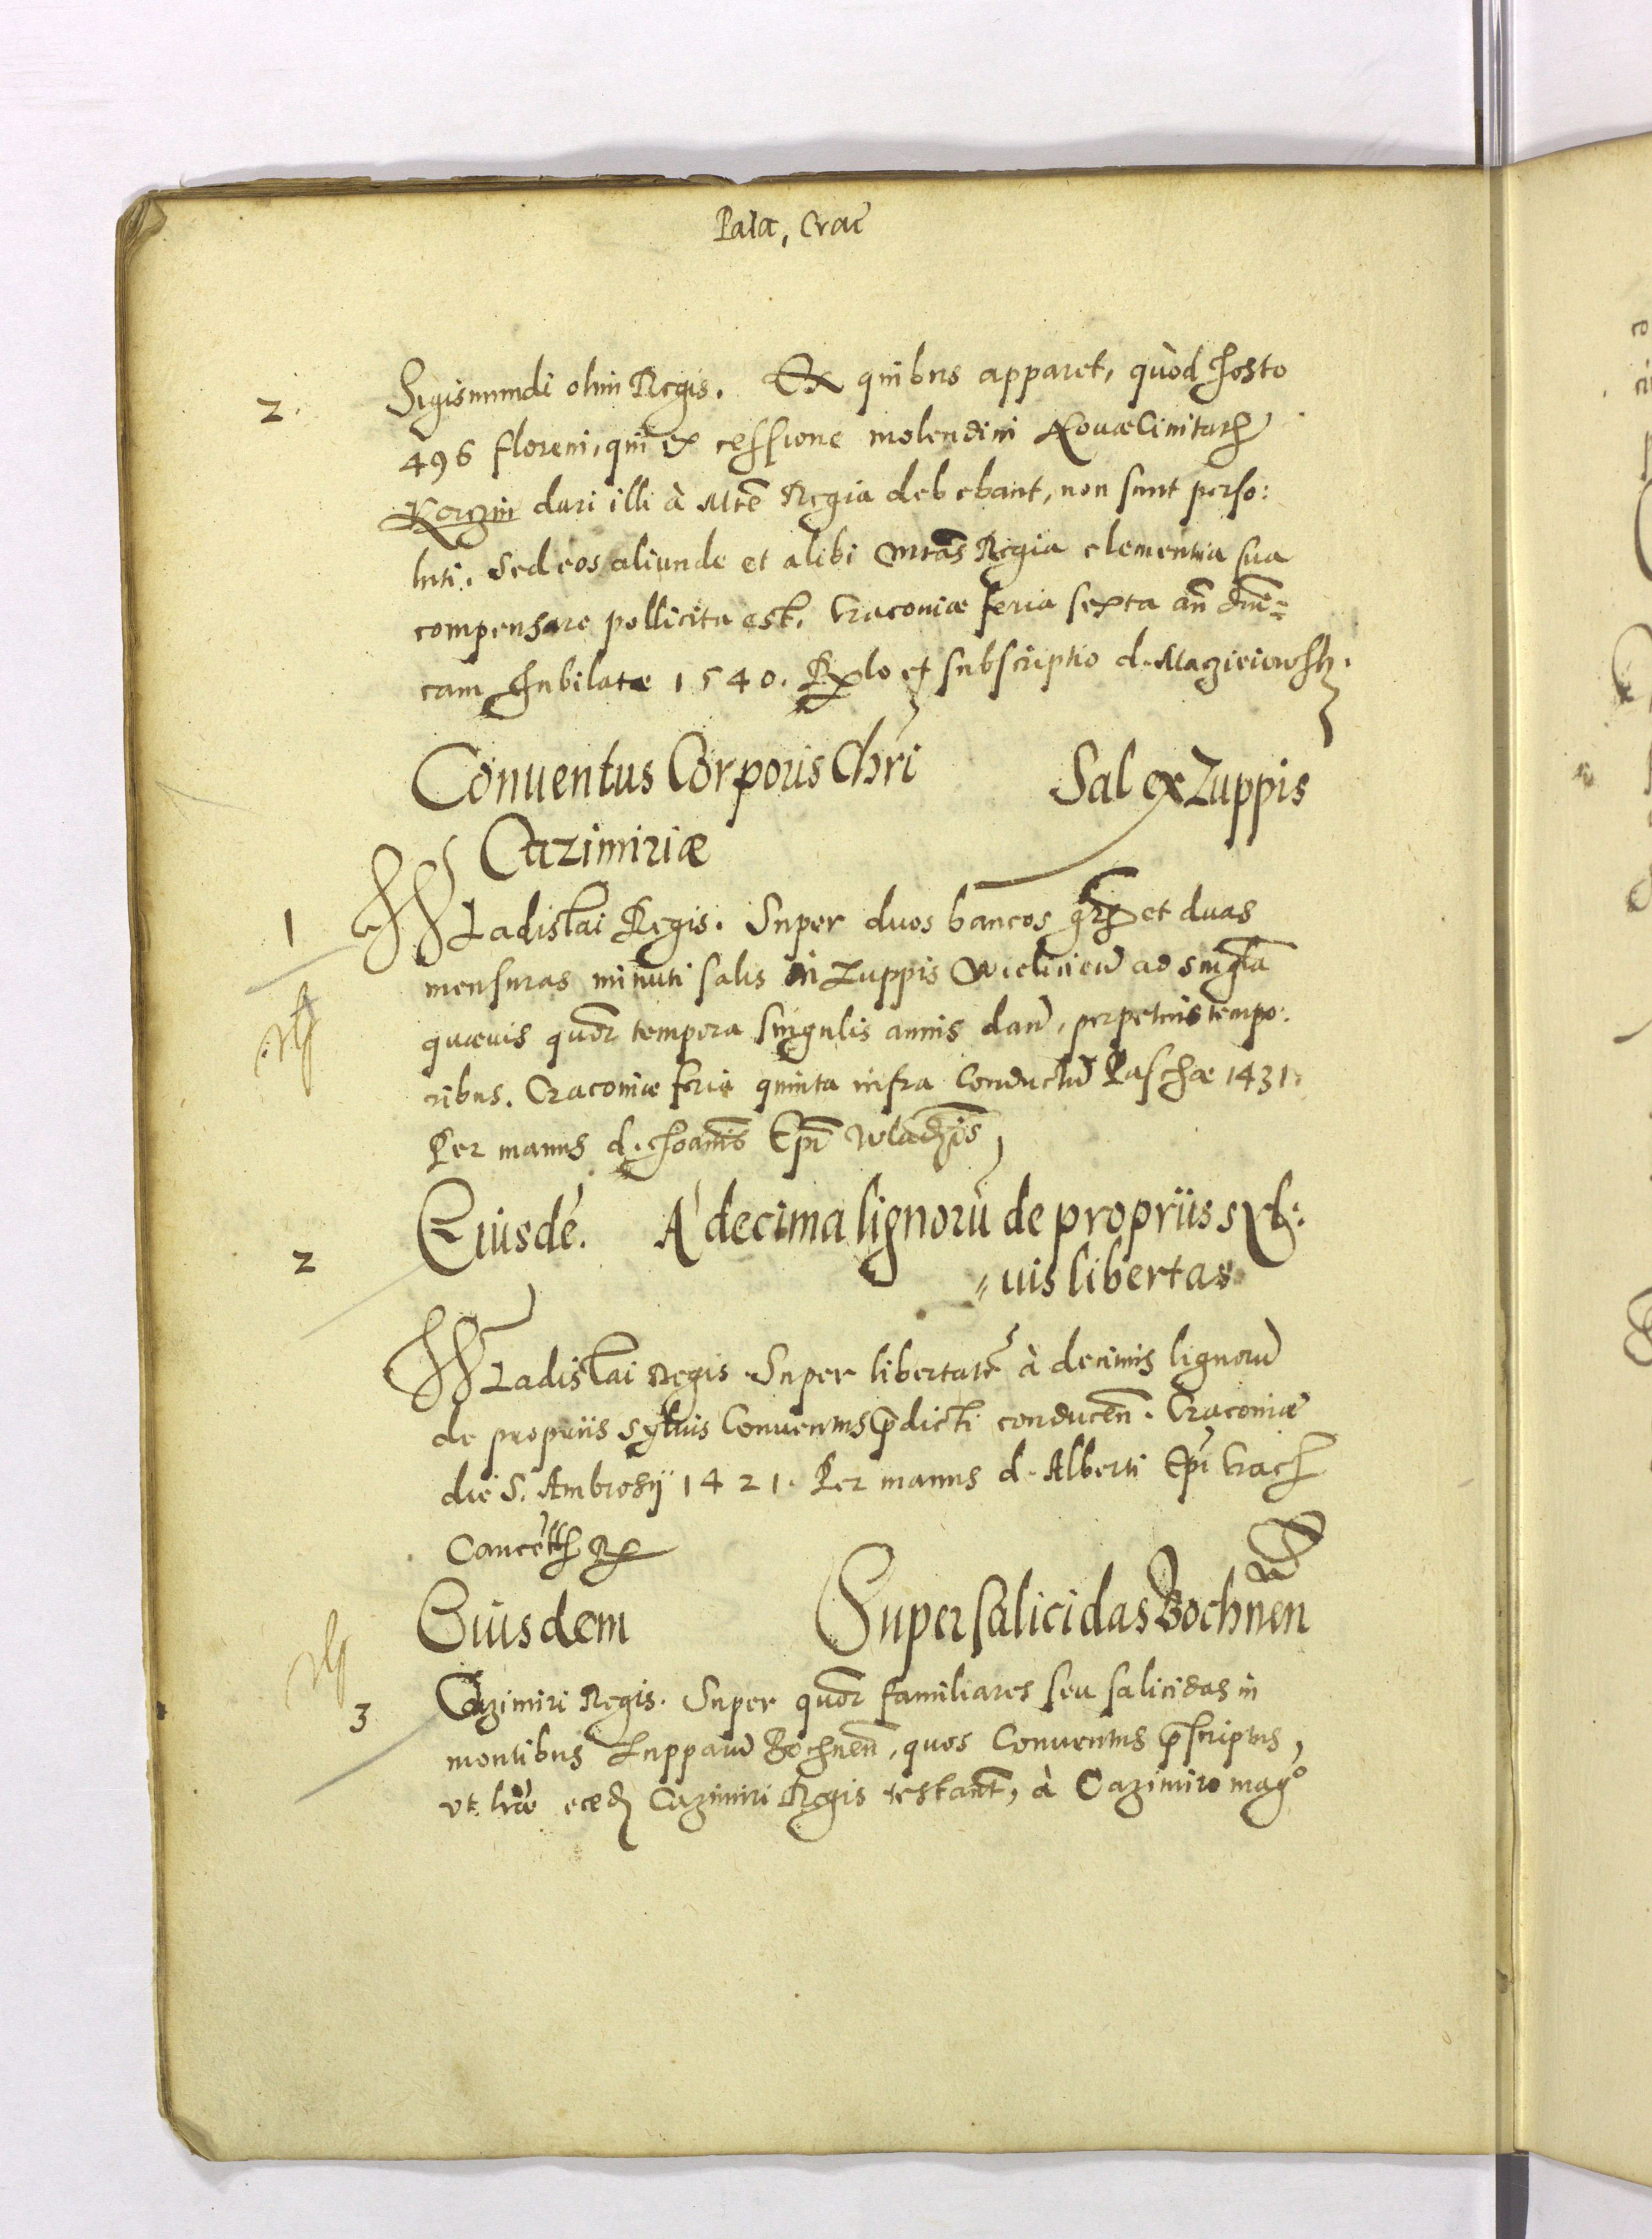 Pala, Crac̃
2. Sigismundi olim Regis. Ex quibus apparet, quòd Josto
496 floreni, qui ex cessione molendini Novæ Civitatis
Korczin dari illi à Mte Regia debebant, non sunt perso:
luti. Sed eos aliunde et alibi Mtas Regia clementia sua
compensare pollicita est. Cracoviæ feria sexta añ dñi=
cam Jubilatæ 1540. Rx lo et subscriptio d. Maczieiowsk.
Conventus Corporis Chri Sal ex Zuppis
Cazimiriæ
1 Wladislai Regis. Super duos bancos et duas
mensuras minuti salis in Zuppis Wieliciens ad singla
quævis quor tempora singulis annis dand, perpetuis tempo:
ribus. Cracoviæ feria quinta infra Conductũ Paschæ 1431.
Per manus d. Joanis Epi Wladis
2 Eiusdẽ. A' decima lignorũ de propriis syl:
"vis libertas
Wladislai Regis. Super libertatẽ à decimis lignorũ
de propriis sylvis Conventus p̃dicti conducen. Cracoviæ
die S. Ambrosij 1421. Per manus d. Alberti Epi Crac
Cancell R
Eiusdem Super salicidas Bochnen
3 Cazimiri Regis. Super quor familiares seu salicidas in
montibus Zupparũ Bochnen, quos Conventus p̃scriptus,
vt lræ eæd Cazimiri Regis testant, à Cazimiro mag°